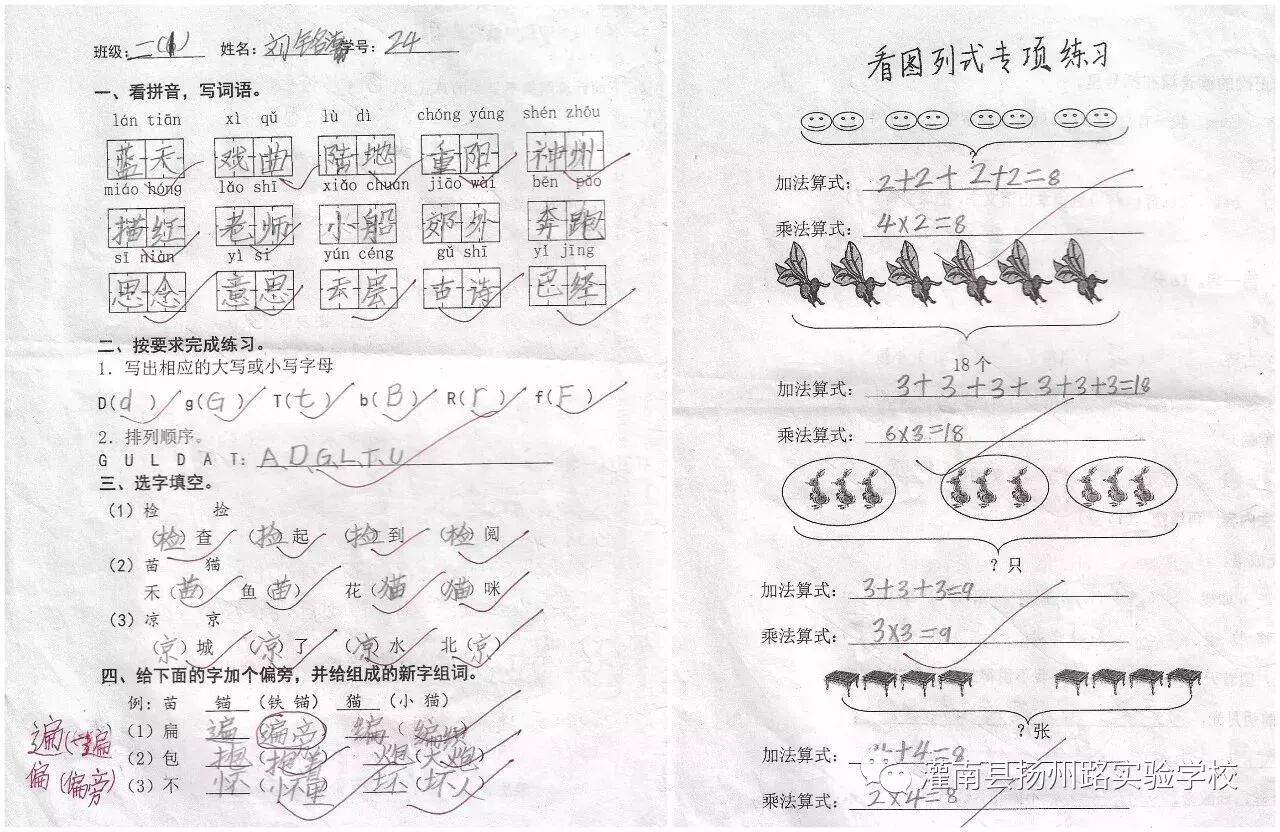 班级:二(1) 姓名:刘铭 学号:24
一、看拼音，写词语。
lán tiān xì qǔ lù dì chóng yáng shén zhōu
蓝天 戏曲 陆地 重阳 神州
miáo hóng lǎo shī xiǎo chuán jiāo wài bēn pǎo
描红 老师 小船 郊外 奔跑
sī niàn yì si yún céng gǔ shī yǐ jīng
思念 意思 云层 古诗 已经
二、按要求完成练习。
1. 写出相应的大写或小写字母
D(d) g(G) T(t) b(B) R(r) f(F)
2. 排列顺序。
G U L D A T: A、D、G、L、T、U
三、选字填空。
(1) 检 捡
(检)查 (捡)起 (捡)到 (检)阅
(2) 苗 猫
禾(苗) 鱼(苗) 花(猫) (猫)咪
(3) 凉 京
(京)城 (凉)了 (凉)水 北(京)
四、给下面的字加个偏旁，并给组成的新字组词。
例: 苗 锚 (铁 锚) 猫 (小 猫)
(1) 扁 遍 (偏旁) 编 (编)
(2) 包 抱 (抱) 炮 (大炮)
(3) 不 怀 坏 (坏人)
遍(一遍)
偏(偏旁)
看图列式专项练习
?
加法算式: 2+2+2+2=8
乘法算式: 4×2=8
18 个
加法算式: 3+3+3+3+3+3=18
乘法算式: 6×3=18
? 只
加法算式: 3+3+3=9
乘法算式: 3×3=9
? 张
加法算式: +4=8
乘法算式: 2×4=8
灌南县扬州路实验学校